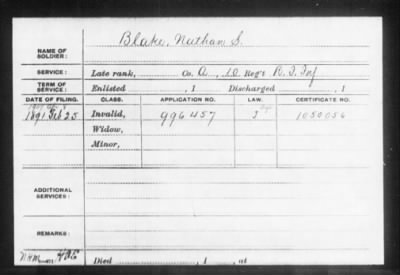 Blake, Nathan S.
NAME OF
SOLDIER:
SERVICE: Late rank, Co. A, 10 Reg't R. I. Inf
TERM OF
SERVICE: Enlisted , 1 Discharged , 1
DATE OF FILING. CLASS. APPLICATION NO. LAW. CERTIFICATE NO.
1891 Feb 25 Invalid, 996457 1050056
Widow,
Minor,
ADDITIONAL
SERVICES:
REMARKS:
Died , 1 , at